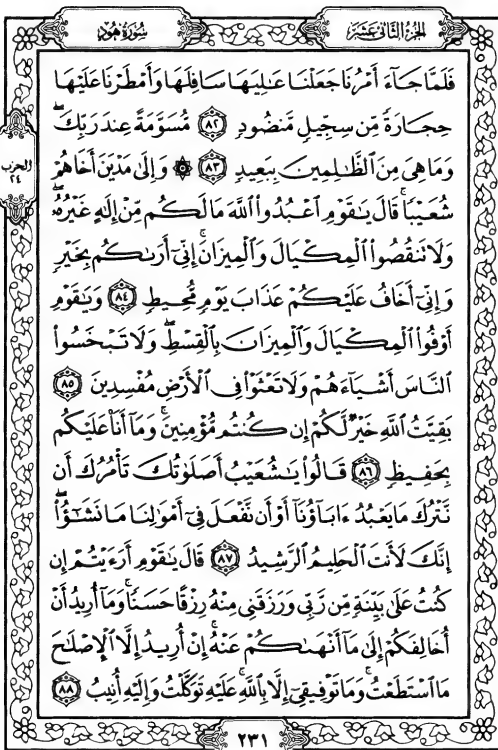 الجزء الثاني عشر
سورة هود
فَلَمَّا جَآءَ أَمْرُنَا جَعَلْنَا عَـٰلِيَهَا سَافِلَهَا وَأَمْطَرْنَا عَلَيْهَا
حِجَارَةً مِّن سِجِّيلٍ مَّنضُودٍ ٨٢ مُّسَوَّمَةً عِندَ رَبِّكَۖ
وَمَا هِىَ مِنَ ٱلظَّـٰلِمِينَ بِبَعِيدٍ ٨٣ ۞ وَإِلَىٰ مَدْيَنَ أَخَاهُمْ
شُعَيْبًاۚ قَالَ يَـٰقَوْمِ ٱعْبُدُوا۟ ٱللَّهَ مَا لَكُم مِّنْ إِلَـٰهٍ غَيْرُهُۥۖ
وَلَا تَنقُصُوا۟ ٱلْمِكْيَالَ وَٱلْمِيزَانَۚ إِنِّىٓ أَرَىٰكُم بِخَيْرٍ
وَإِنِّىٓ أَخَافُ عَلَيْكُمْ عَذَابَ يَوْمٍ مُّحِيطٍ ٨٤ وَيَـٰقَوْمِ
أَوْفُوا۟ ٱلْمِكْيَالَ وَٱلْمِيزَانَ بِٱلْقِسْطِۖ وَلَا تَبْخَسُوا۟
ٱلنَّاسَ أَشْيَآءَهُمْ وَلَا تَعْثَوْا۟ فِى ٱلْأَرْضِ مُفْسِدِينَ ٨٥
بَقِيَّتُ ٱللَّهِ خَيْرٌ لَّكُمْ إِن كُنتُم مُّؤْمِنِينَۚ وَمَآ أَنَا۠ عَلَيْكُم
بِحَفِيظٍ ٨٦ قَالُوا۟ يَـٰشُعَيْبُ أَصَلَوٰتُكَ تَأْمُرُكَ أَن
نَّتْرُكَ مَا يَعْبُدُ ءَابَآؤُنَآ أَوْ أَن نَّفْعَلَ فِىٓ أَمْوَٰلِنَا مَا نَشَـٰٓؤُا۟ۖ
إِنَّكَ لَأَنتَ ٱلْحَلِيمُ ٱلرَّشِيدُ ٨٧ قَالَ يَـٰقَوْمِ أَرَءَيْتُمْ إِن
كُنتُ عَلَىٰ بَيِّنَةٍ مِّن رَّبِّى وَرَزَقَنِى مِنْهُ رِزْقًا حَسَنًاۚ وَمَآ أُرِيدُ أَنْ
أُخَالِفَكُمْ إِلَىٰ مَآ أَنْهَىٰكُمْ عَنْهُۚ إِنْ أُرِيدُ إِلَّا ٱلْإِصْلَـٰحَ
مَا ٱسْتَطَعْتُۚ وَمَا تَوْفِيقِىٓ إِلَّا بِٱللَّهِۚ عَلَيْهِ تَوَكَّلْتُ وَإِلَيْهِ أُنِيبُ ٨٨
الحزب
٢٤
٢٣١